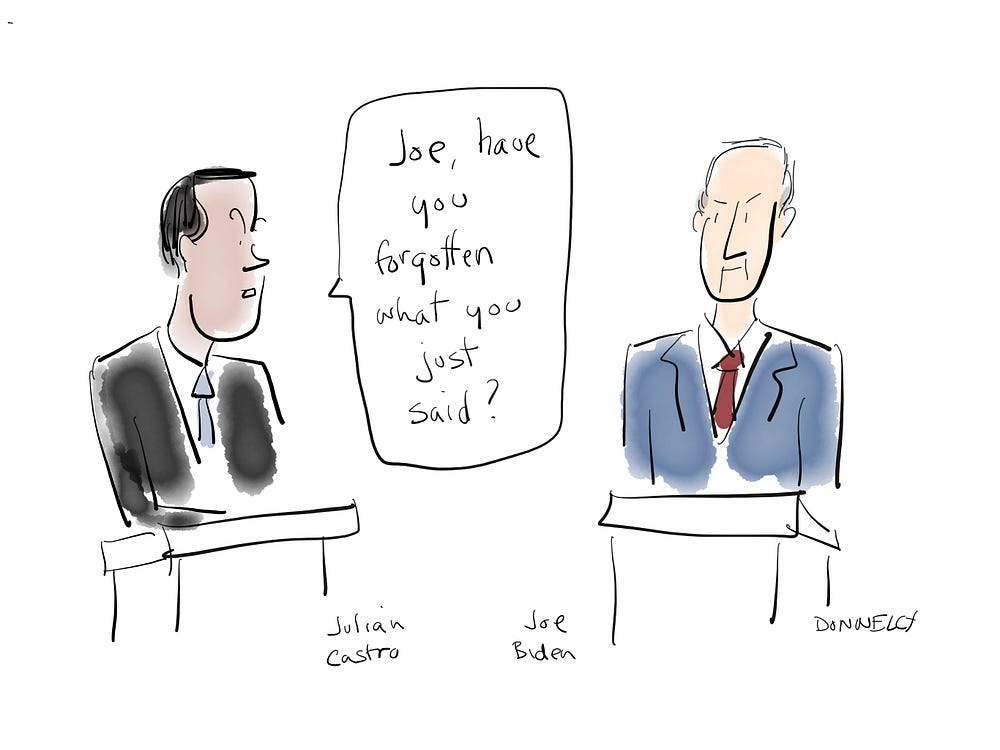 Joe, have
you
forgotten
what you
just
said?
Julián
Castro
Joe
Biden
DONNELLY